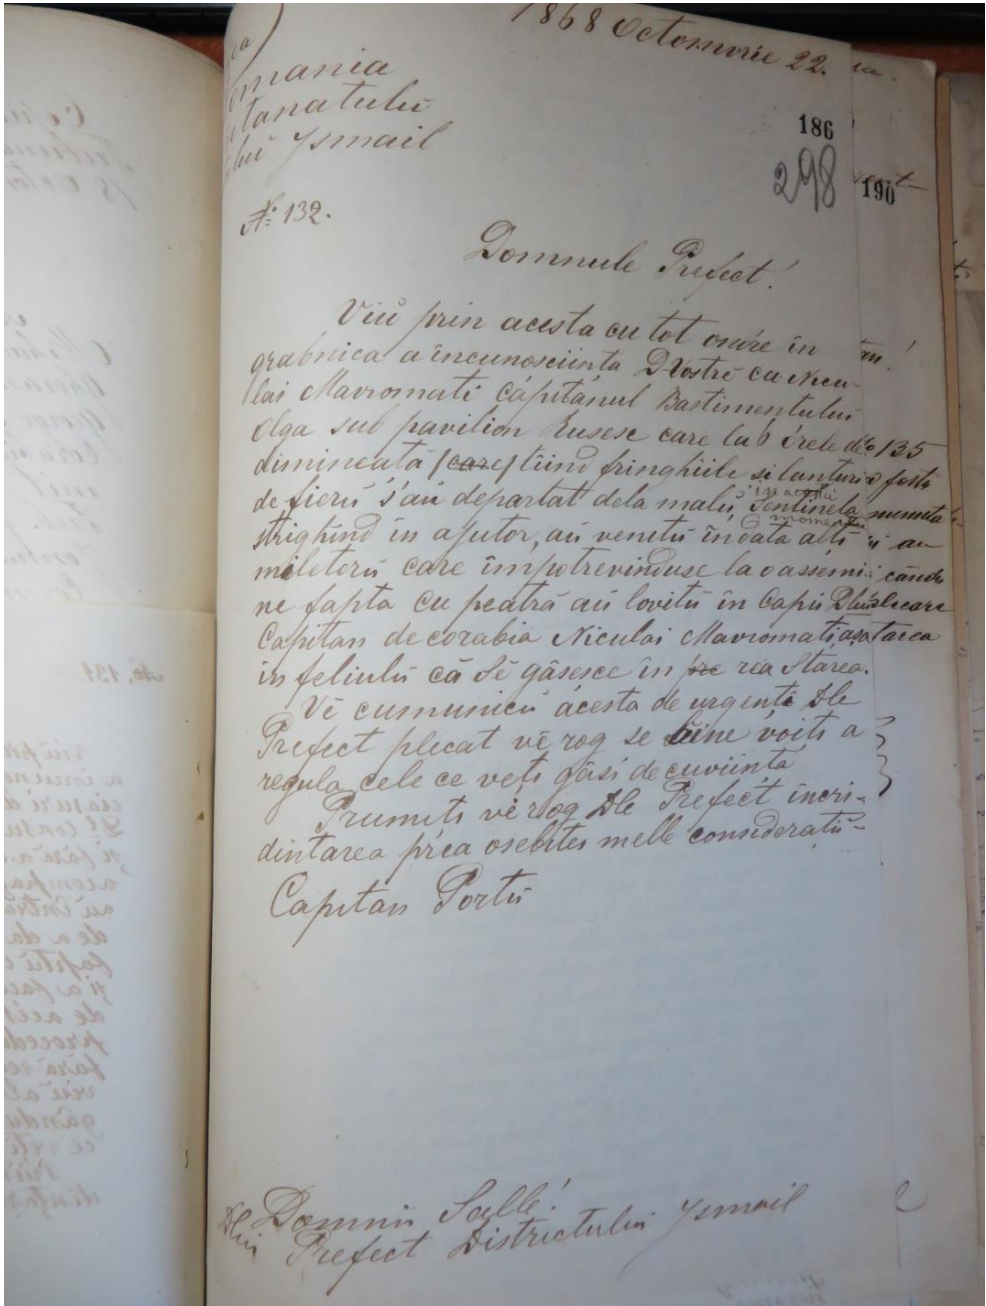 1868 Octomvrie 22.
omania
itanatului
lui Ysmail
186
298
190
No 132.
Domnule Prefect!
Viu prin acesta cu tot onóre în
grabnica a încunosciinta D-Vostrĕ ca Nicu-
lai Mavromati Căpitănul Bastimentului
Olga sub pavilion Rusesc care la 6 órele de
dimineatā (care) tiind fringhiile si lanturi
de fierŭ s'aŭ departat dela malŭ, in acestŭ momentŭ Sentinela
strighind in ajutor, aŭ venitŭ îndata alti
miletori care împotrevinduse la o assemi
ne fapta cu peatră aŭ lovitŭ in Capŭ Dlui
Capitan de corabia Niculai Mavromati, asa
in feliulŭ că Sĕ găsesce în pre rea Stărea.
Vĕ cumunicŭ acesta de urgentĕ Dle
Prefect plecat vĕ rog se bine voiti a
regula cele ce veti găsi de cuviintă
Prumiti vĕ rog Dle Prefect incri-
dintarea prea osebitei melle consideratii-
Capitan Portŭ
135
fostŭ
cândŭ
plecare
tarea
No. 131
Domnii Salle!
Dlui Prefect Districtului Ysmail